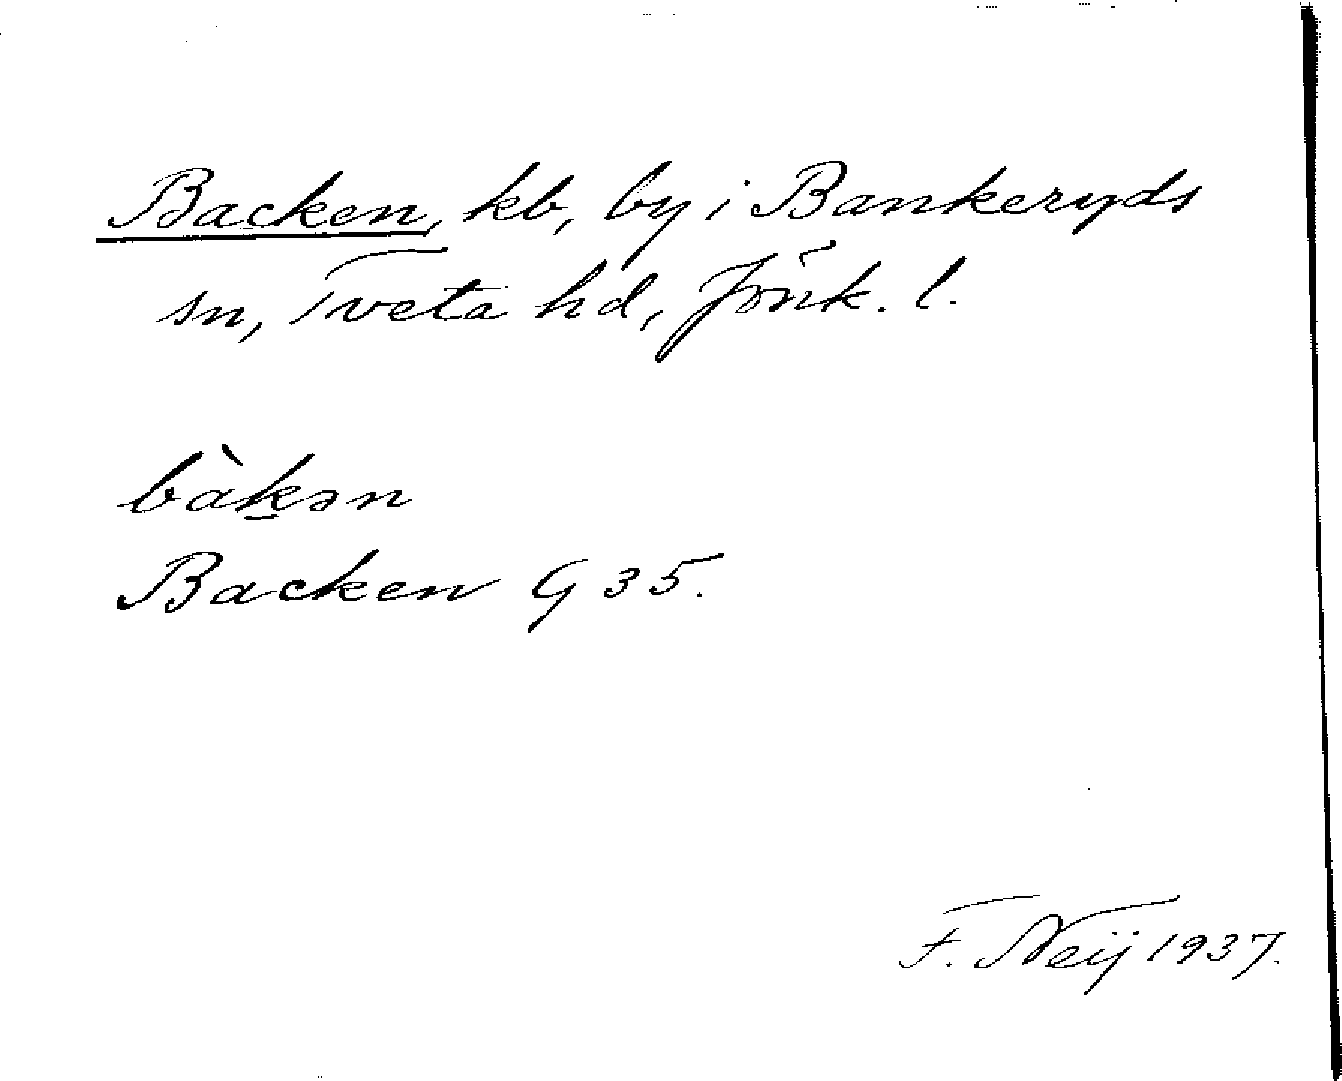 Backen, kb, by i Bankeryds
sn, Tveta hd, Jönk. l.
bàk̠ən
Backen G 35.
F. Neij 1937.